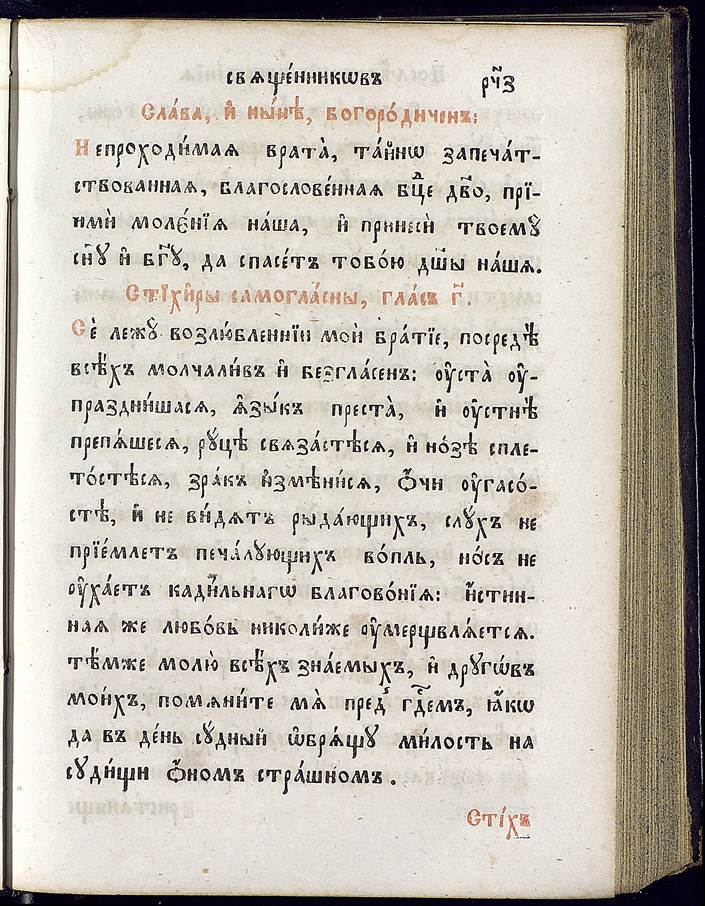 свѧще́нникѡвъ
рч҃з
Сла́ва, и҆ ны́нѣ, богоро́диченъ:
Непроходи́маѧ врата̀, та́йнѡ запеча́т-
ствованнаѧ, благослове́ннаѧ бцⷣе дв҃о, прїи-
имѝ моле́нїѧ на́ша, и҆ принесѝ твоемꙋ̀
сн҃ꙋ и҆ бг҃ꙋ, да спасе́тъ тобо́ю дш҃ы на́шѧ.
Стїхи̑ры самогла́сны, гла́съ г҃.
Сѐ лежꙋ̀ возлю́бленнїи мои̑ бра́тїе, посредѣ̀
всѣ́хъ молчали́въ и҆ безгла́сенъ: ᲂу҆ста̀ ᲂу҆-
праздни́шасѧ, ѧ҆зы́къ преста̀, и҆ ᲂу҆стнѣ̀
препѧ́шесѧ, рꙋцѣ̀ свѧза́стѣсѧ, и҆ но́зѣ спле-
то́стѣсѧ, зра́къ и҆змѣни́сѧ, ѻ҆́чи ᲂу҆гасо́-
стѣ, и҆ не ви́дѧтъ рыда́ющихъ, слꙋ́хъ не
прїе́млетъ печа́лꙋющихъ во́пль, но́съ не
ᲂу҆ха́етъ кади́льнагѡ благово́нїѧ: и҆́стин-
наѧ же любо́вь николи́же ᲂу҆мерщвлѧ́етсѧ.
тѣ́мже молю̀ всѣ́хъ зна́емыхъ, и҆ дрꙋгѡ́въ
мои́хъ, помѧни́те мѧ̀ пред̾ гдⷭ҇емъ, ꙗ҆́кѡ
да въ де́нь сꙋ́дный ѡ҆брѧ́щꙋ ми́лость на
сꙋди́щи ѻ҆́номъ стра́шномъ.
Стїхъ